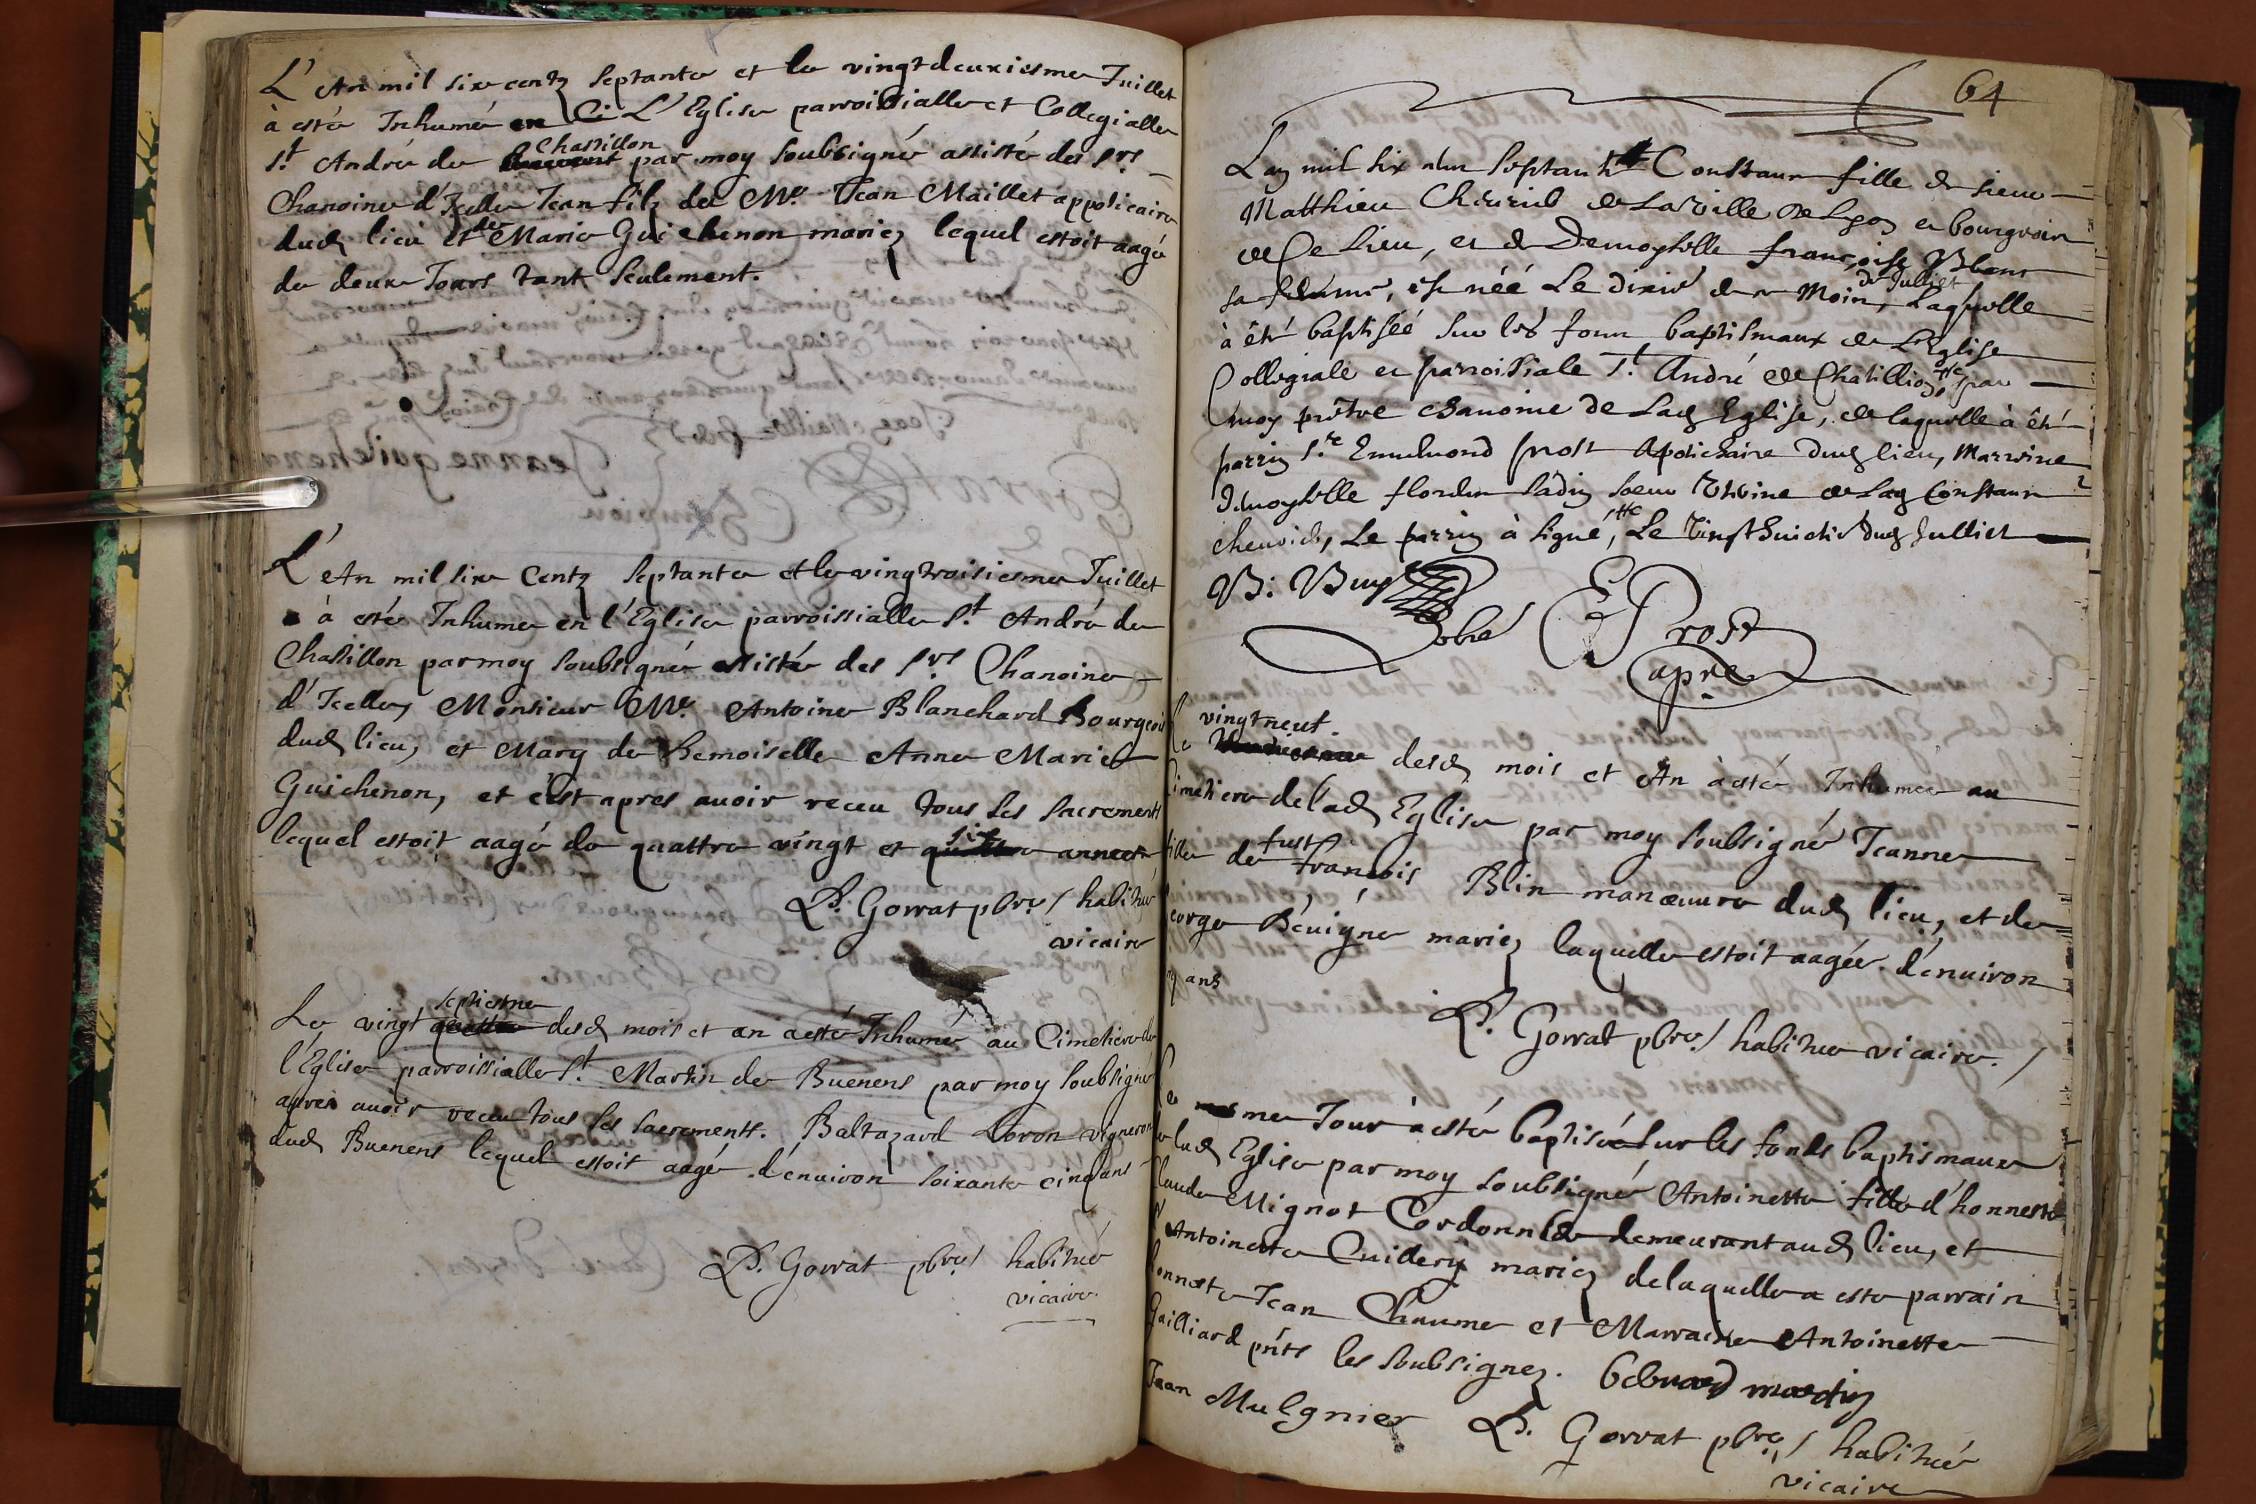 L'An mil six centz septante et le vingtdeuxiesme Juillet
à esté Inhumé en L'Eglise parroissialle et Collegialle
St André de Chastillon par moy soubsigné assisté des srs
Chanoine d'Icelle Jean fils de Me Jean Maillet appoticaire
dud lieu et de Marie Guichenon mariez lequel estoit aagé
de deux Jours tant seulement.
L'An mil six Centz septante et le vingtroisiesme Juillet
à esté Inhume en l'Eglise parroissialle St André de
Chastillon par moy soubsigné assisté des srs Chanoine
d'Icelle, Monsieur Me Antoine Blanchard Bourgeois
dud lieu, et Mary de Demoiselle Anne Marie
Guichenon, et c'est apres auoir receu tous les sacrements
lequel estoit aagé de quattre vingt et six annees
P. Gorrat pbre / habitué
vicaire
Le vingt septiesme desd mois et an a esté Inhumé au Cimetiere de
l'Eglise parroissialle St Martin de Buenens par moy soubsigné
apres auoir receu tous les sacrements. Baltazard Loron vigneron
dud Buenens lequel estoit aagé d'enuiron soixante cinq ans
P. Gorrat pbre / habitué
vicaire
64
Lan mil six septante Constance fille de sieur
Matthieu de la ville de Lyon et bourgeois
de Ce lieu, et de Demoyselle françoise Blanc
sa femme, est néé Le dixie du Moin de Julliet, Laquelle
à êté baptiséé sur les fonn baptismaux de L'Eglise
Collegiale et parroissiale St André de Chatillion par
moy prêtre chanoine de Lad Eglise, de laquelle à êté
parrin Sre Ennemond prost Apoticaire dud lieu, Marreine
Demoyselle de Lad Constance
Le parrin à signé, Le vingt huictie dud Julliet
B: Buy
E Prost
apre
Le vingtneuf desd mois et An à esté Inhumee au
Cimetiere de lad Eglise par moy soubsigné Jeanne
fille de fust françois Blin manœuure dud lieu, et de
Beuigne mariez laquelle estoit aagée d'enuiron
ans
P. Gorrat pbre / habitué vicaire. /
Le mesme Jour à esté baptisée sur les fonds baptismaux
de lad Eglise par moy soubsigné Antoinette fille d'honneste
Claude Mignot Cordonnier demeurant aud lieu, et
d'Antoinette Cuidery mariez de laquelle a esté parrain
honneste Jean Chaume et Marraine Antoinette
Gailliard pnts les soubsignez. bernard martin
Jean Mulgnier P. Gorrat pbre / habitué
vicaire